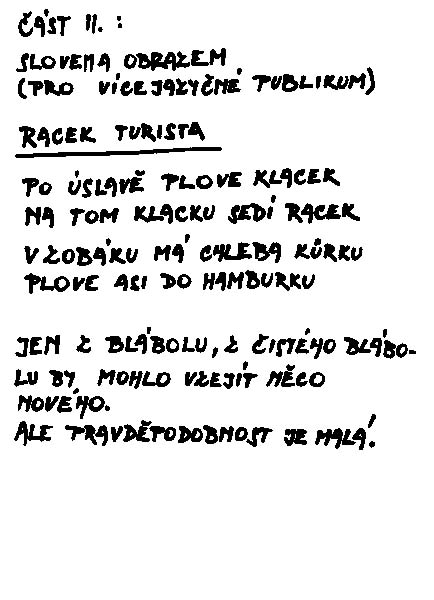 ČÁST II. :
SLOVEM A OBRAZEM
(PRO VÍCEJAZYČNÉ PUBLIKUM)
RACEK TURISTA
PO ÚSLAVĚ PLOVE KLACEK
NA TOM KLACKU SEDÍ RACEK
V ZOBÁKU MÁ CHLEBA KŮRKU
PLOVE ASI DO HAMBURKU
JEN Z BLÁBOLU, Z ČISTÉHO BLÁBO-
LU BY MOHLO VZEJÍT NĚCO
NOVÉHO.
ALE PRAVDĚPODOBNOST JE MALÁ.